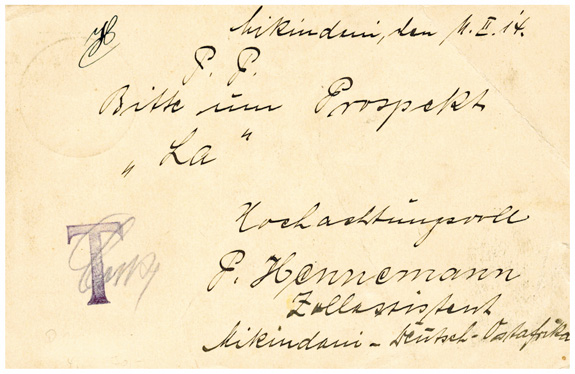 H
Mikindani, den 11.II.14.
P. P.
Bitte um Prospekt
„ La "
Hochachtungsvoll
T
P. Hennemann
Zollassistent
Mikindani - Deutsch-Ostafrika